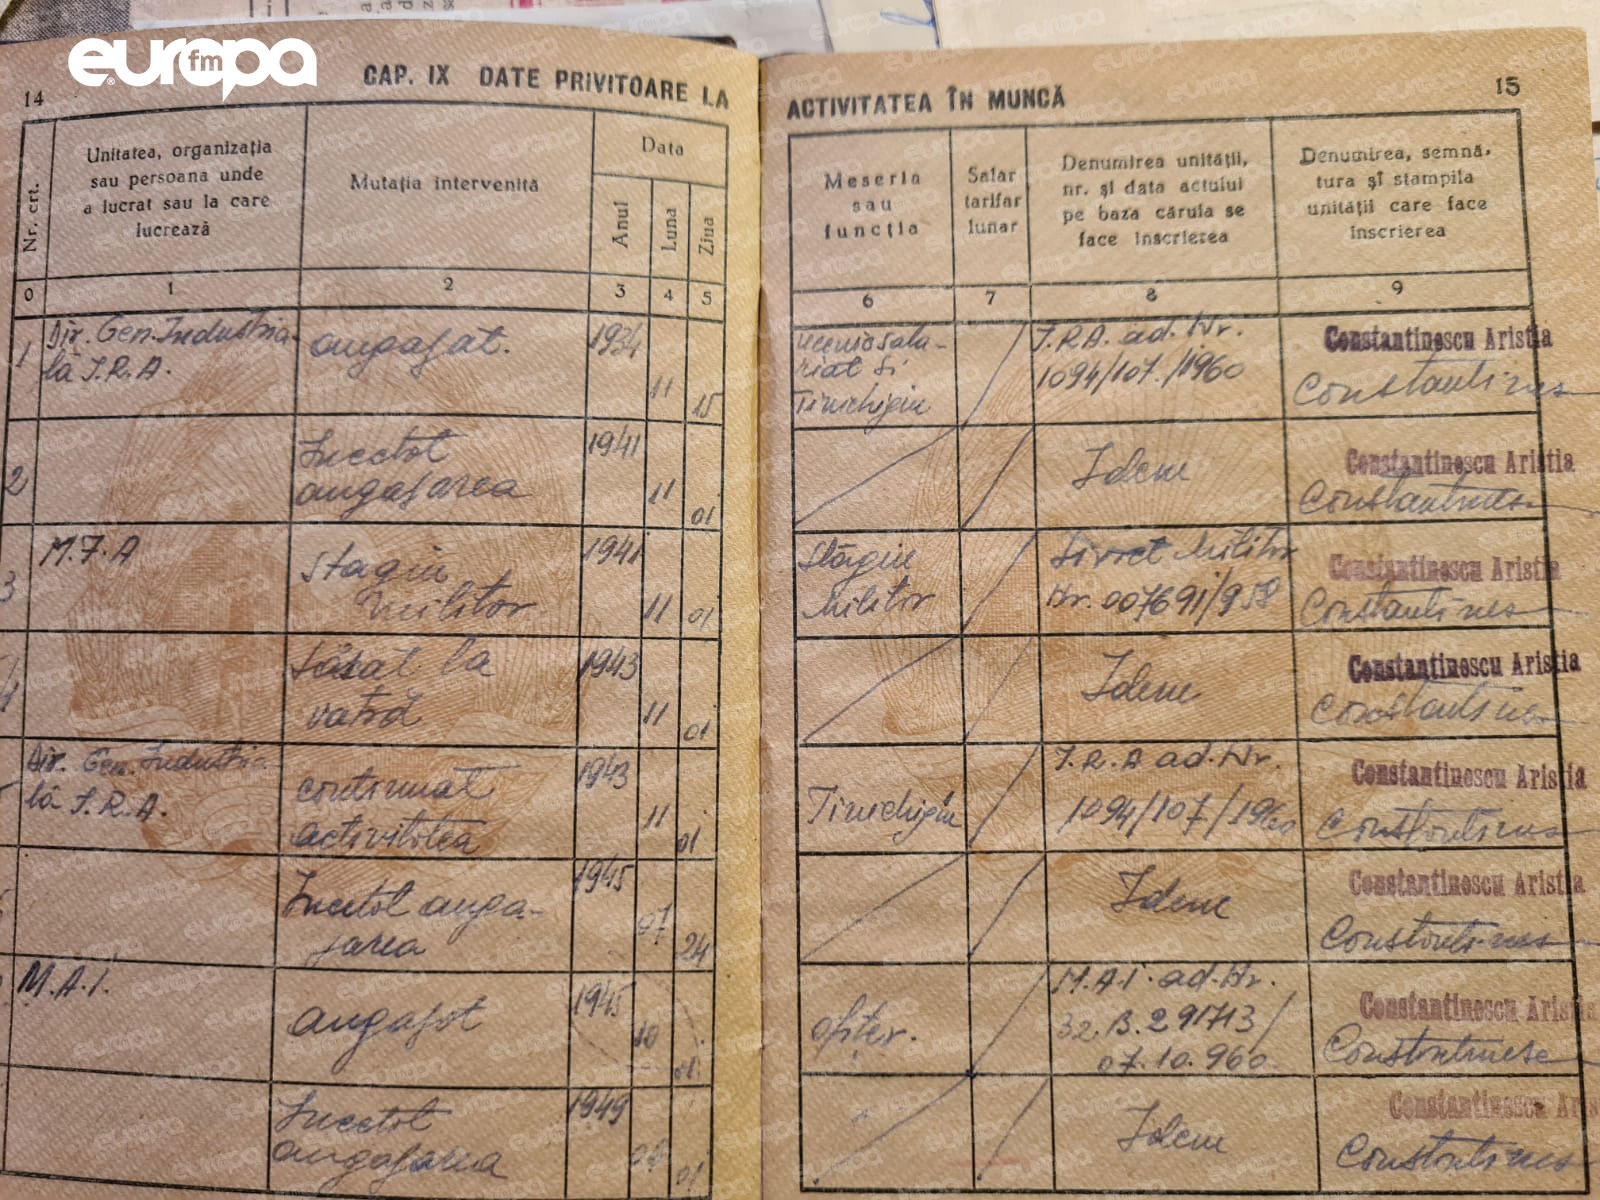 europa fm
14
CAP. IX DATE PRIVITOARE LA
ACTIVITATEA ÎN MUNCĂ
15
Nr. crt.
Unitatea, organizația
sau persoana unde
a lucrat sau la care
lucrează
Mutația intervenită
Data
Anul
Luna
Ziua
Meseria
sau
funcția
Salar
tarifar
lunar
Denumirea unității,
nr. și data actului
pe baza căruia se
face înscrierea
Denumirea, semnă-
tura și stampila
unității care face
înscrierea
0 1 2 3 4 5 6 7 8 9
1 Dir. Gen. Industria-
lă J.R.A.
angajat. 1934 11 15
salariat și
Tinichigiu
J.R.A. ad. Nr.
1094/107./1960
Constantinescu Aristia
Constantines
2 Încetat
angajarea 1941 11 01
Idem
Constantinescu Aristia
Constantines
3 M.F.A
Stagiu
militar 1941 11 01
Stagiu
Militar
Livret Militar
Nr. 007691/958
Constantinescu Aristia
Constantines
4 Lăsat la
vatră 1943 11 01
Idem
Constantinescu Aristia
Constantines
Dir. Gen. Industria-
lă J.R.A.
continuat
activitatea 1943 11 01
Tinichigiu
J.R.A ad. Nr.
1094/107/1960
Constantinescu Aristia
Constantines
Încetat anga-
jarea 1945 07 24
Idem
Constantinescu Aristia
Constantines
M.A.I.
angajat 1945 10 01
ofițer.
M.A.I. ad. Nr.
32.B.291713/
07.10.960
Constantinescu Aristia
Constantinesc
Încetat
angajarea 1949 01
Idem
Constantinescu Aris
Constantines